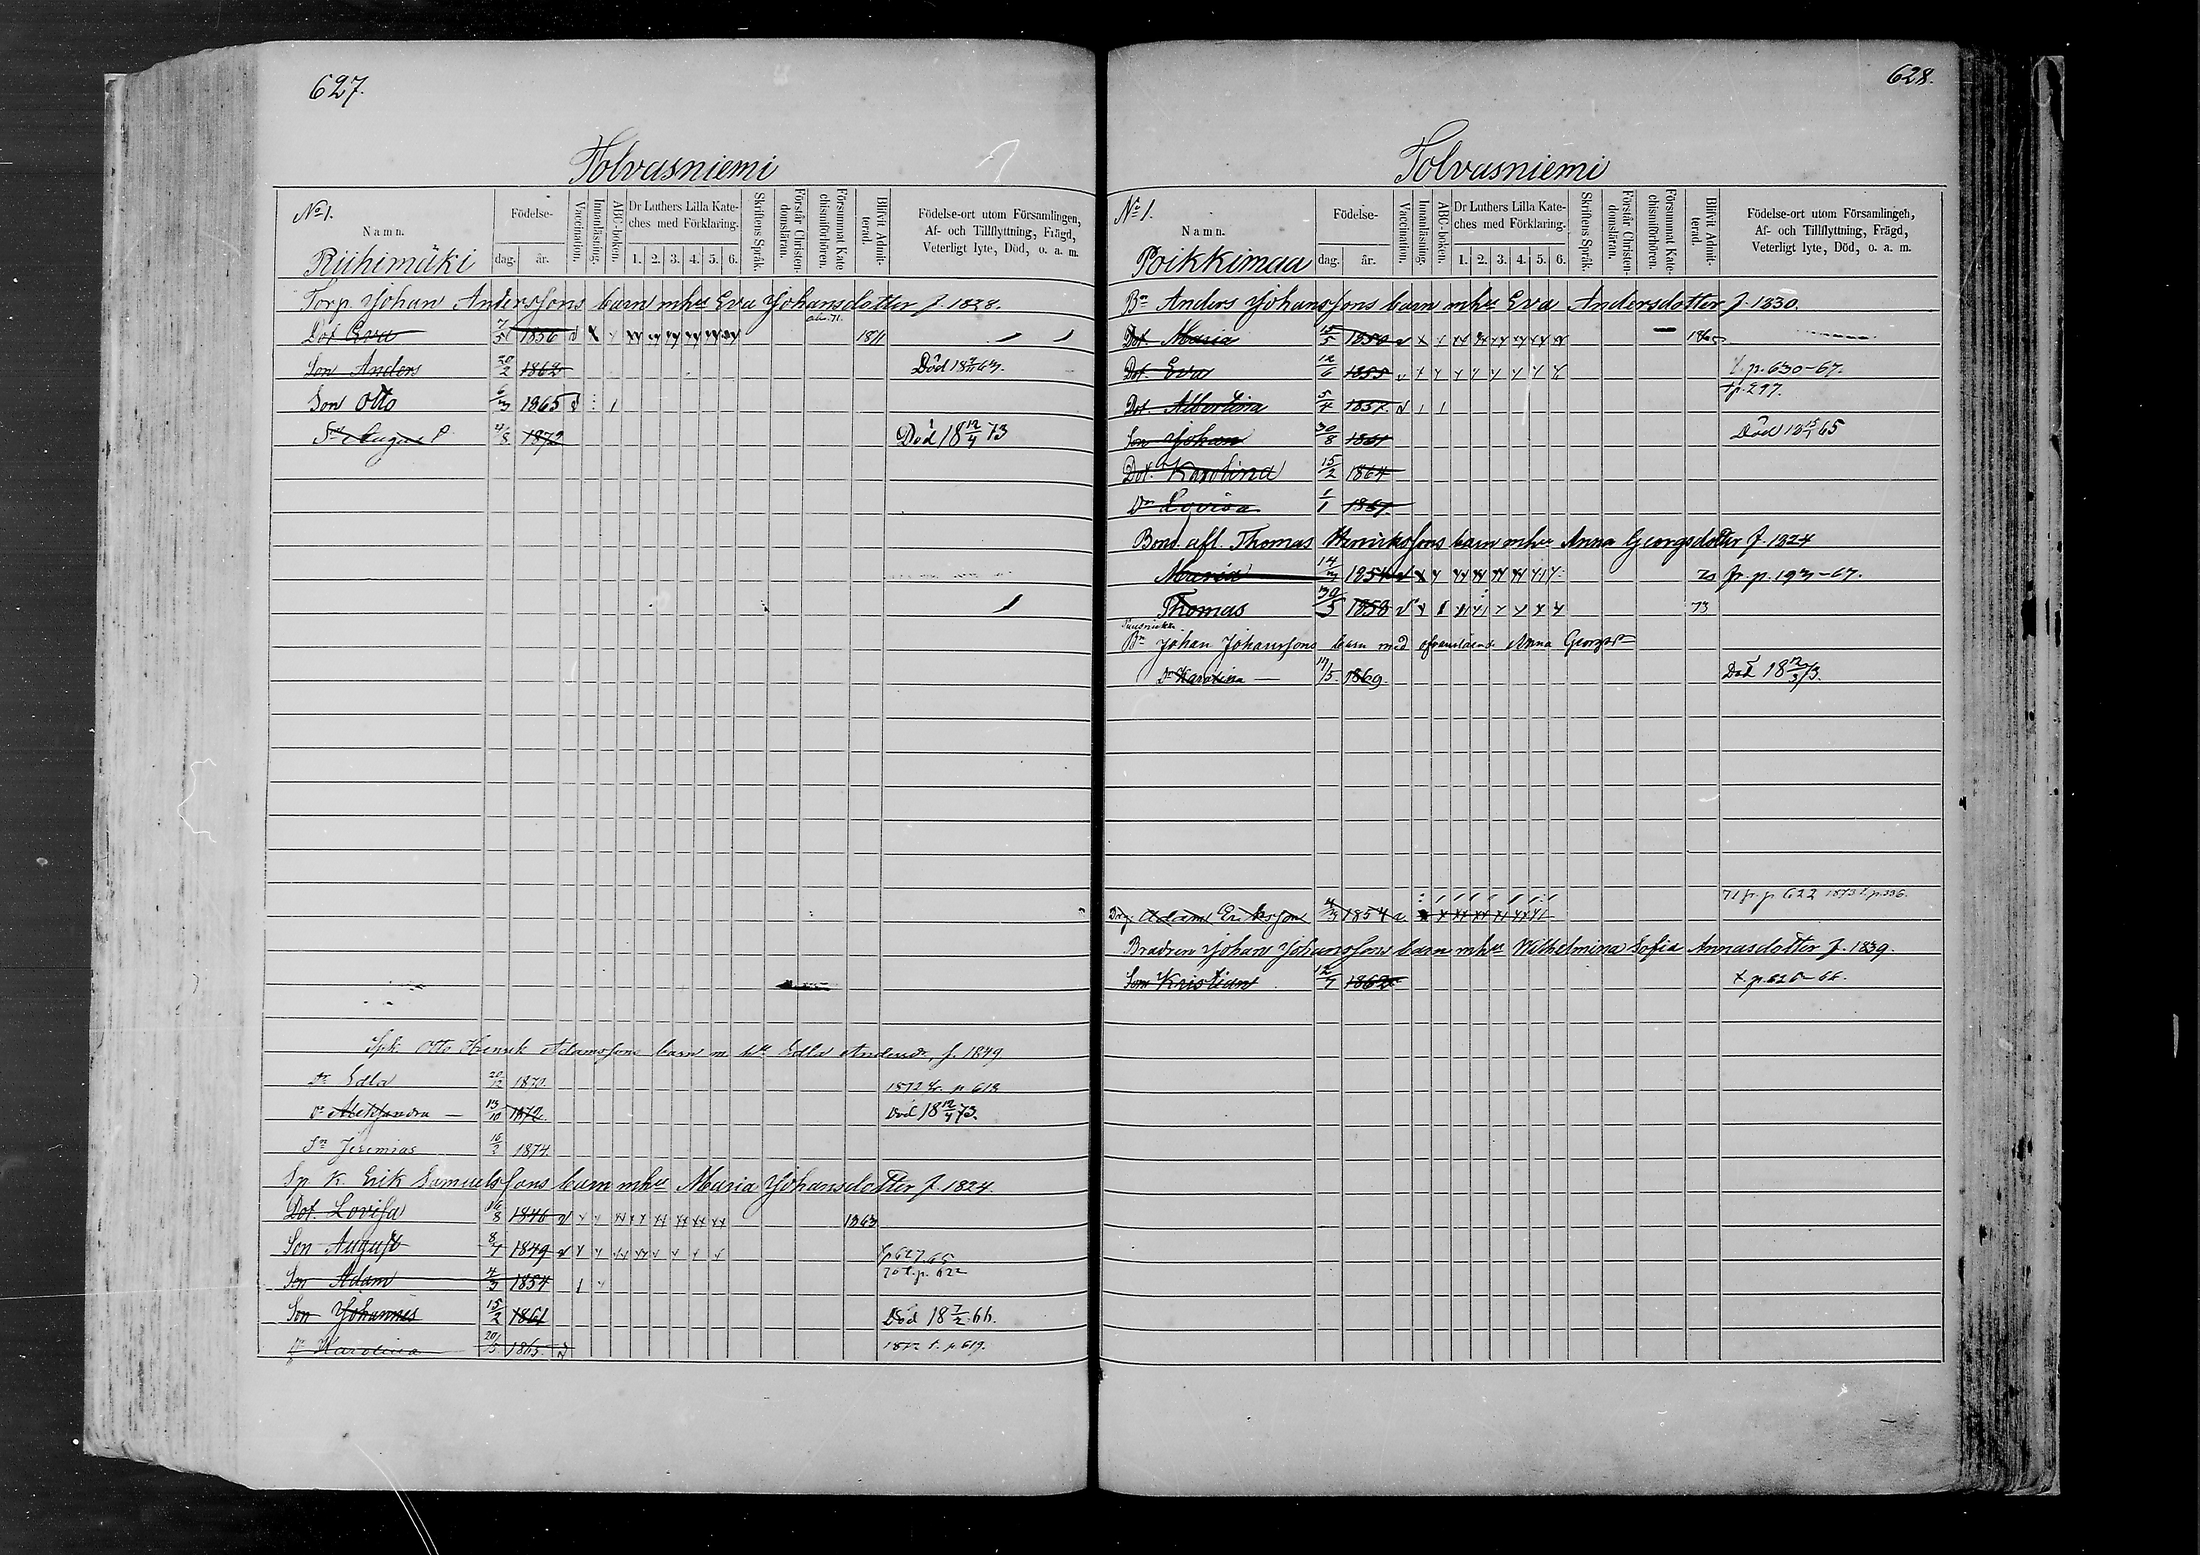 627.
Tolvasniemi
No 1.
Namn.
Födelse-
dag.
år.
Vaccination.
Innanläsning.
ABC-boken.
Dr Luthers Lilla Kate-
ches med Förklaring.
1. 2. 3. 4. 5. 6.
Skriftens Språk.
Förstår Christen-
domsläran.
Försummat Kate
chismiförhören.
Blifvit Admit-
terad.
Födelse-ort utom Församlingen,
Af- och Tillflyttning, Frägd,
Veterligt lyte, Död, o. a. m.
Riihimäki
Torp. Johan Anderssons barn m hu Eva Johansdotter f. 1828.
Dot Eva 7/5 1856 1871
Son Anders 20/2 1862 Död 63.
Son Otto 6/3 1865
Sn August 1872 Död 18 12/4 73
Spk. Otto Henrik Adamssons barn m hu Edla Andersdr, f. 1849
Dr Edla 20/12 1870 1872 fr. p 618
Dr Alexandra — 13/10 1872 Död 18 12/4 73.
Sn Jeremias 16/2 1874
Sp. K. Erik Samuelssons barn m hu Maria Johansdotter f. 1824.
Dot. Lovisa 16/8 1846 1863
Son August 8/7 1849
Son Adam 4/3 1854 70 t. p. 622
Son Johannes 15/2 1861 Död 18 7/2 66.
Dr Karolina 20/5 1865 1872 t. p 619.
628.
Tolvasniemi
No 1.
Namn.
Födelse-
dag.
år.
Vaccination.
Innanläsning.
ABC-boken.
Dr Luthers Lilla Kate-
ches med Förklaring.
1. 2. 3. 4. 5. 6.
Skriftens Språk.
Förstår Christen-
domsläran.
Försummat Kate-
chismiförhören.
Blifvit Admit-
terad.
Födelse-ort utom Församlingen,
Af- och Tillflyttning, Frägd,
Veterligt lyte, Död, o. a. m.
Poikkimaa
Bn Anders Johanssons barn m hu Eva Andersdotter f. 1830.
Dot. Maria 15/5 1850 1865
Dot. Eva 12/6 1855 t. p. 630-67.
Dot. Albertina 5/4 1857 t p. 297.
Son Johan 30/8 1861 Död 65
Dot. Karolina 15/2 1864
Dr Lovisa 1/1 1867.
Bond. afl. Thomas Henrikssons barn m hu Anna Georgsdotter f. 1824
Maria 1854 fr. p. 193-67.
Thomas 30/5 1858 73
Bn Johan Johanssons barn med ofvanstående Anna Georgsdr
Dr Karolina — 14/5 1869. Död 18 12/3 73.
71 fr. p 622 1873 t. p. 336.
Drg. Adam Eriksson 4/3 1854
Brodren Johan Johanssons barn m hu Wilhelmina Sofia Annasdotter f. 1839.
Son Kristian 12/7 1862 t. p. 626-66.